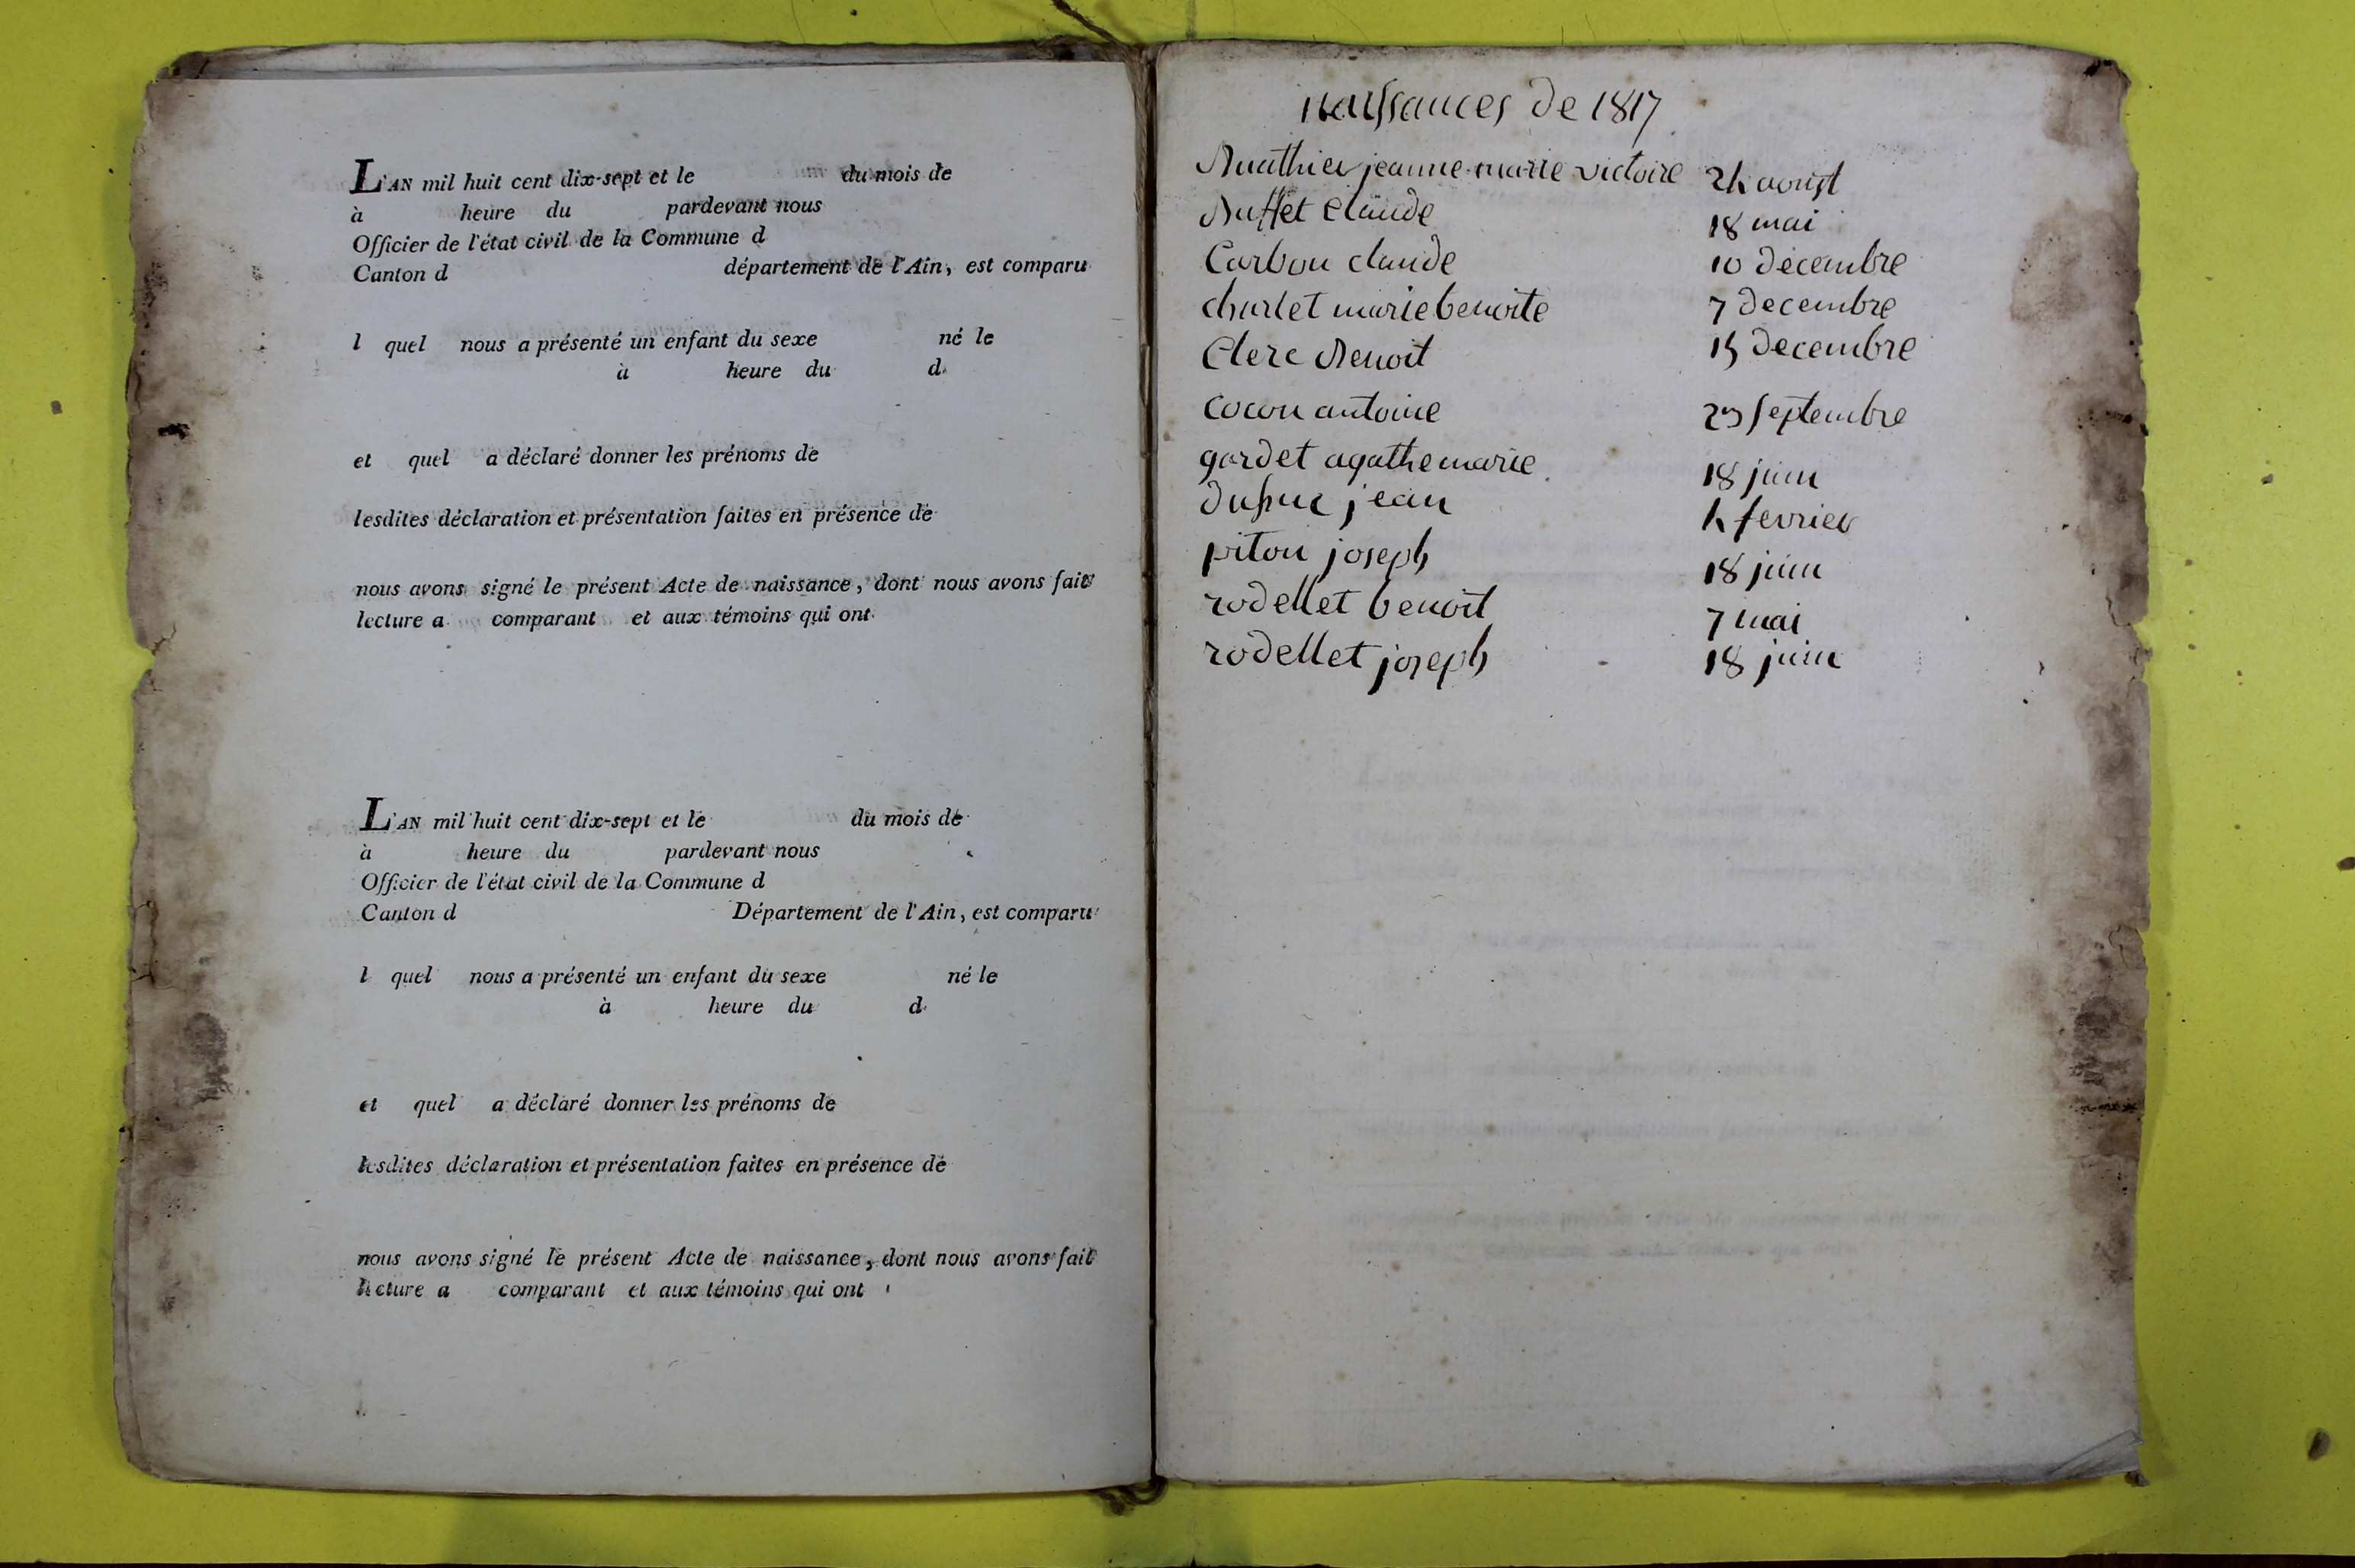 L'AN mil huit cent dix-sept et le du mois de
à heure du pardevant nous
Officier de l'état civil de la Commune d
Canton d département de l'Ain, est comparu
l quel nous a présenté un enfant du sexe né le
à heure du d
et quel a déclaré donner les prénoms de
lesdites déclaration et présentation faites en présence de
nous avons signé le présent Acte de naissance, dont nous avons fait
lecture a comparant et aux témoins qui ont
L'AN mil huit cent dix-sept et le du mois de
à heure du pardevant nous
Officier de l'état civil de la Commune d
Canton d Département de l'Ain, est comparu
l quel nous a présenté un enfant du sexe né le
à heure du d
et quel a déclaré donner les prénoms de
lesdites déclaration et présentation faites en présence de
nous avons signé le présent Acte de naissance, dont nous avons fait
lecture a comparant et aux témoins qui ont
naissances de 1817
jeanne marie victoire 24 aoust
Buffet claude 18 mai
Carbon claude 10 decembre
charlet marie benoite 7 decembre
Clerc Benoit 15 decembre
cocon antoine septembre
gardet agathe marie 18 juin
jean 4 fevrier
piton joseph 18 juin
rodellet benoit 7 mai
rodellet joseph 18 juin